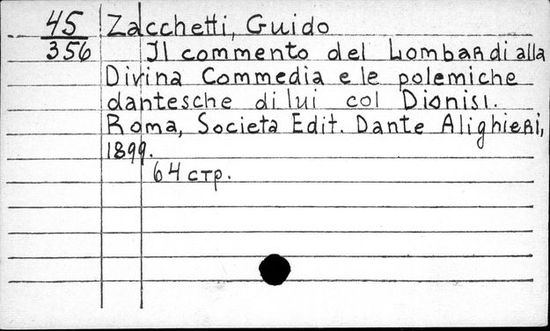 45 Zacchetti, Guido
356 Il commento del Lombardi alla
Divina Commedia e le polemiche
dantesche di lui col Dionisi.
Roma, Societa Edit. Dante Alighieri,
1899.
64 стр.